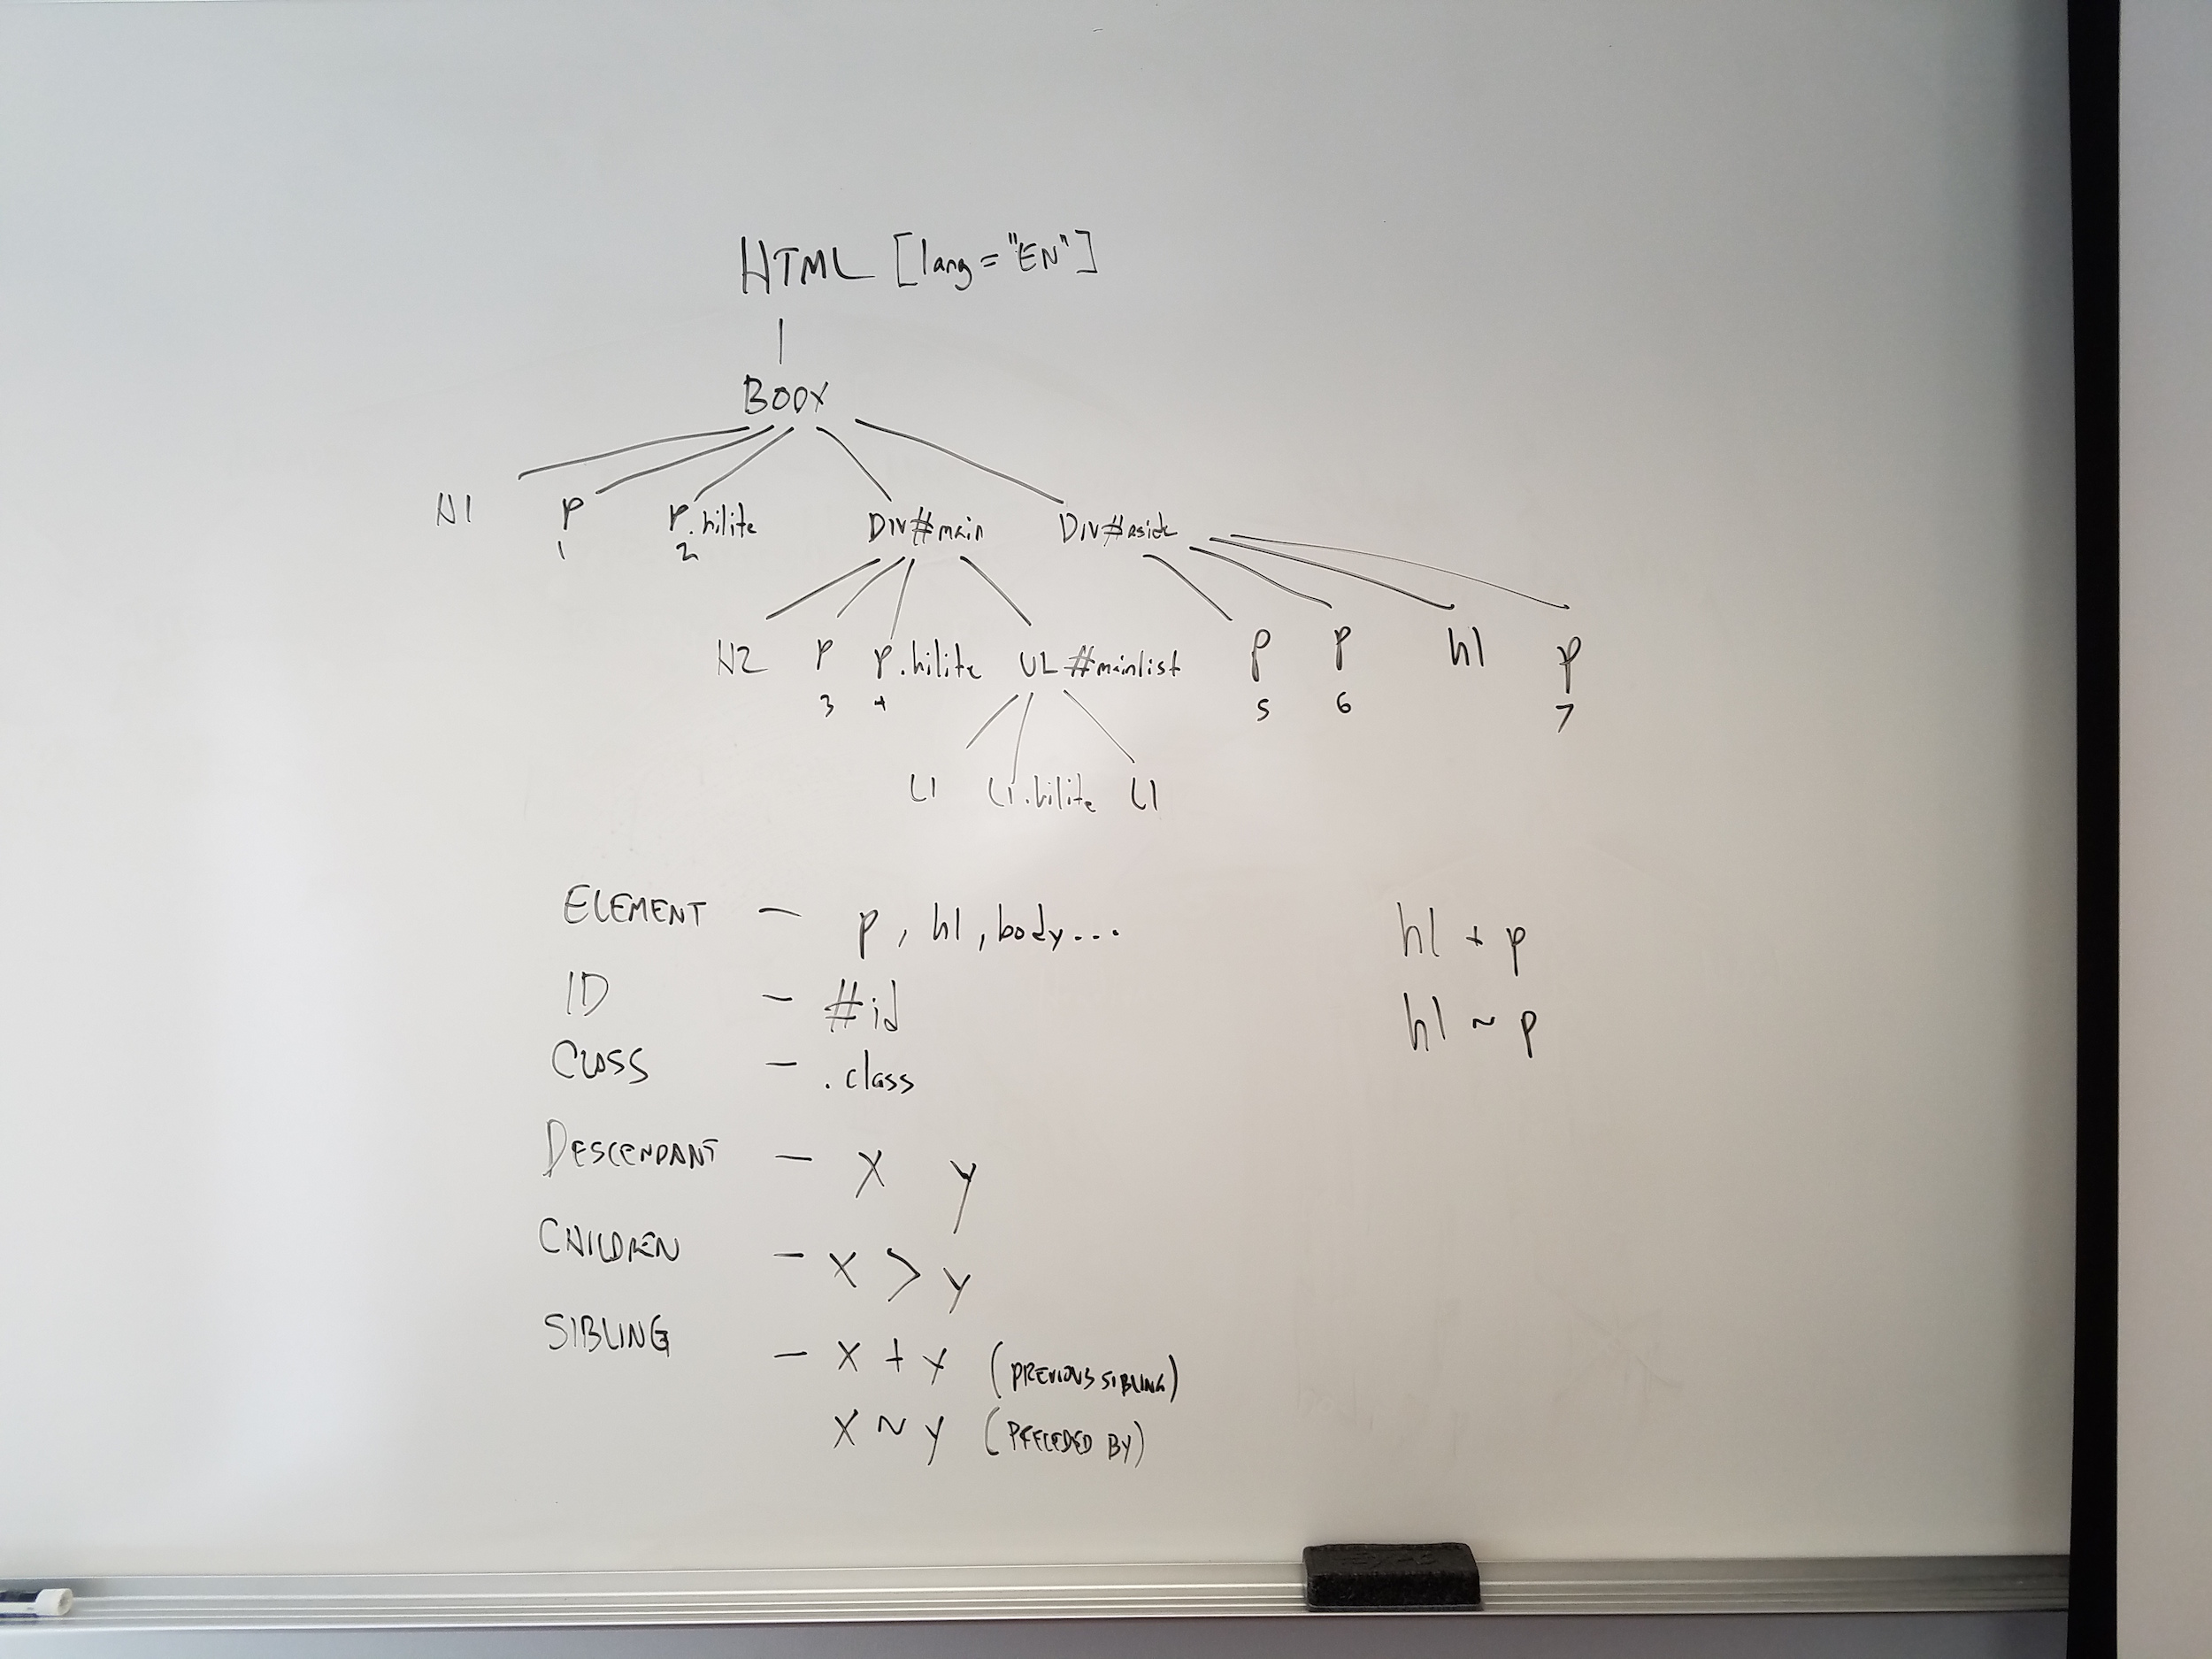 HTML [lang="EN"]
BODY
H1 p p.hilite Div#main Div#aside
1 2
H2 p p.hilite UL#mainlist p p h1 p
3 4 5 6 7
LI LI.hilite LI
ELEMENT — p, h1, body...
ID — #id
CLASS — .class
DESCENDANT — X Y
CHILDREN — X > Y
SIBLING — X + Y (PREVIOUS SIBLING)
X ~ Y (PRECEDED BY)
h1 + p
h1 ~ p